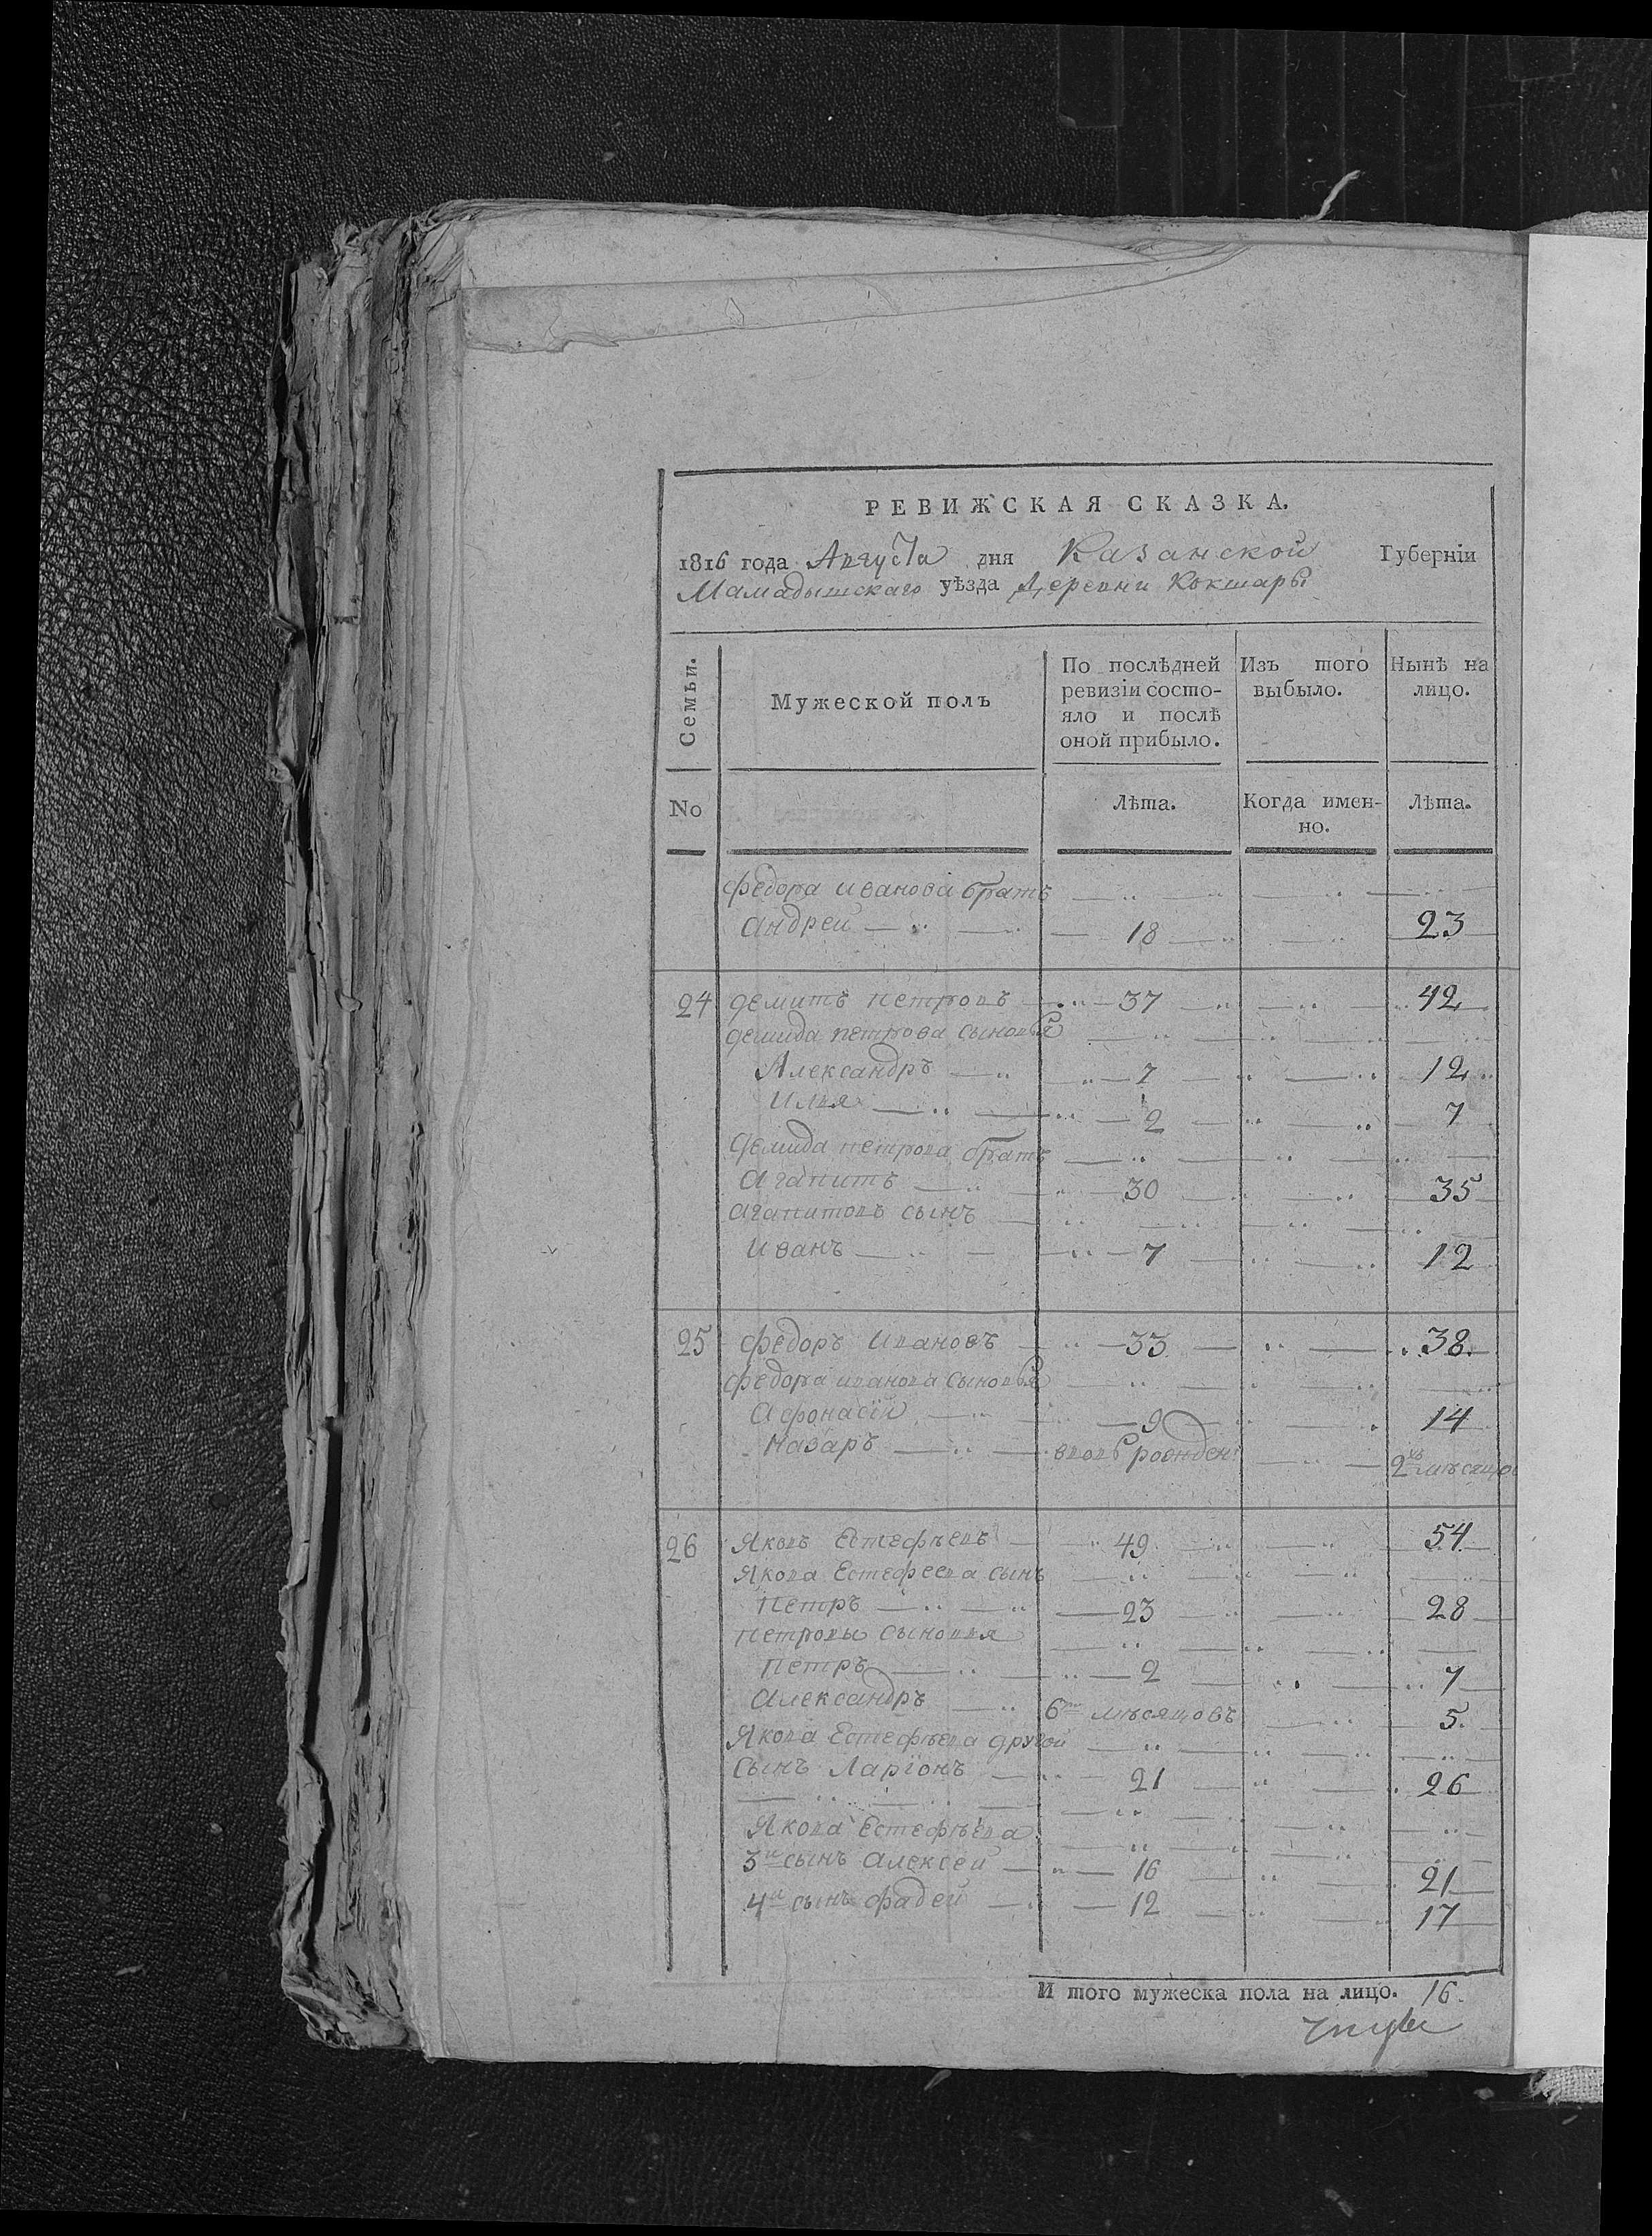 РЕВИЖСКАЯ СКАЗКА.
1816 года Августа дня Казанской Губернїи
Мамадышскаго уѣзда Деревни Кокшары
Семьи. Мужеской полъ По послѣдней ревизїи состояло и послѣ оной прибыло. Изъ того выбыло. Нынѣ на лицо.
No Лѣта. Когда именно. Лѣта.
федора иванова братъ
андреи 18 23
24 демитъ петровъ 37 42
демида петрова сыновья
Александръ 7 12
илья 2 7
демида петрова братъ
агапитъ 30 35
агапитовъ сынъ
иванъ 7 12
25 федоръ ивановъ 33 38
федора иванова сыновья
афонасїи 9 14
назаръ вновь рожден 2хъ месяцов
26 яковъ Естефѣевъ 49 54
якова Естефеева сынъ
петръ 23 28
петровы сыновья
петръ 2 7
александръ 6ти мѣсяцовъ 5
якова Естефѣева другой
сынъ Ларїонъ 21 26
якова Естефѣева
3й сынъ алексеи 16 21
4й сынъ фадеи 12 17
И того мужеска пола на лицо. 16